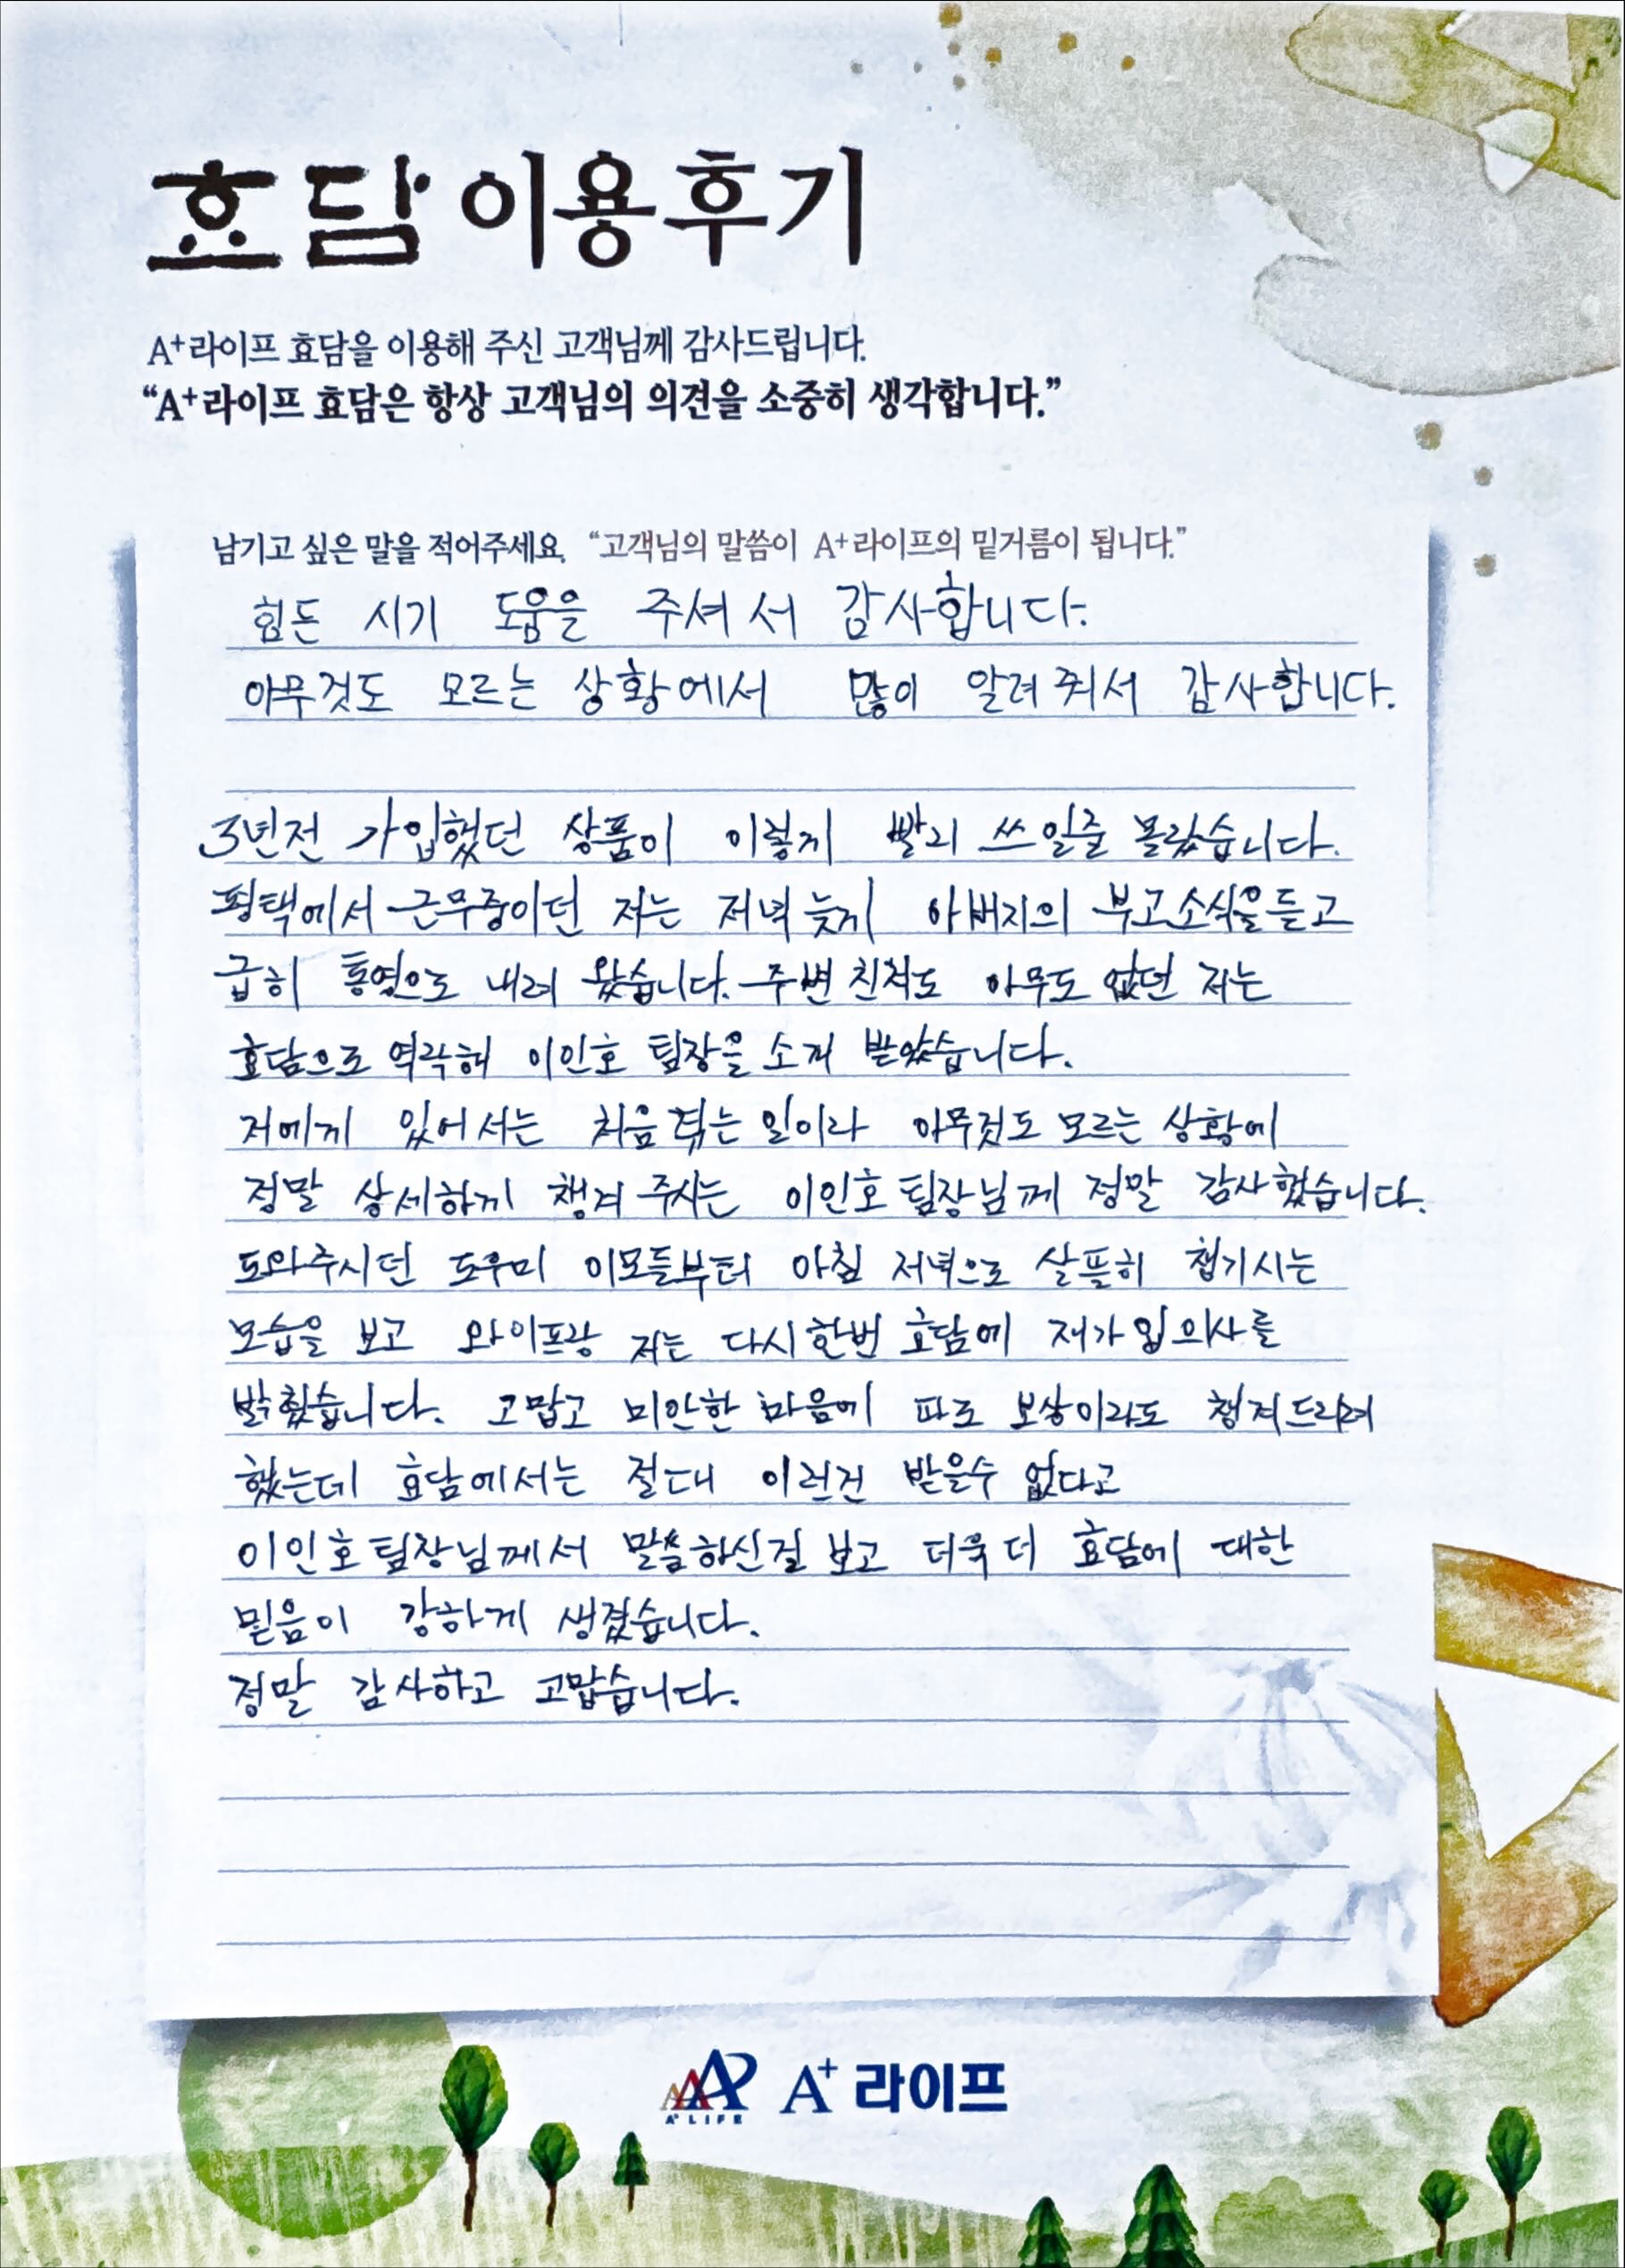 효담 이용후기
A+라이프 효담을 이용해 주신 고객님께 감사드립니다.
“A+라이프 효담은 항상 고객님의 의견을 소중히 생각합니다.”
남기고 싶은 말을 적어주세요. “고객님의 말씀이 A+라이프의 밑거름이 됩니다.”
힘든 시기 도움을 주셔서 감사합니다.
아무것도 모르는 상황에서 많이 알려줘서 감사합니다.
3년전 가입했던 상품이 이렇게 빨리 쓰일줄 몰랐습니다.
평택에서 근무중이던 저는 저녁 늦게 아버지의 부고소식을 듣고
급히 통영으로 내려 왔습니다. 주변 친척도 아무도 없던 저는
효담으로 연락해 이인호 팀장을 소개 받았습니다.
저에게 있어서는 처음 겪는 일이라 아무것도 모르는 상황에
정말 상세하게 챙겨 주시는 이인호 팀장님께 정말 감사했습니다.
도와주시던 도우미 이모들부터 아침 저녁으로 살뜰히 챙기시는
모습을 보고 와이프랑 저는 다시한번 효담에 재가입의사를
밝혔습니다. 고맙고 미안한 마음에 따로 보상이라도 챙겨드리려
했는데 효담에서는 절대 이런건 받을수 없다고
이인호 팀장님께서 말씀하신걸 보고 더욱 더 효담에 대한
믿음이 강하게 생겼습니다.
정말 감사하고 고맙습니다.
A+ LIFE A+ 라이프